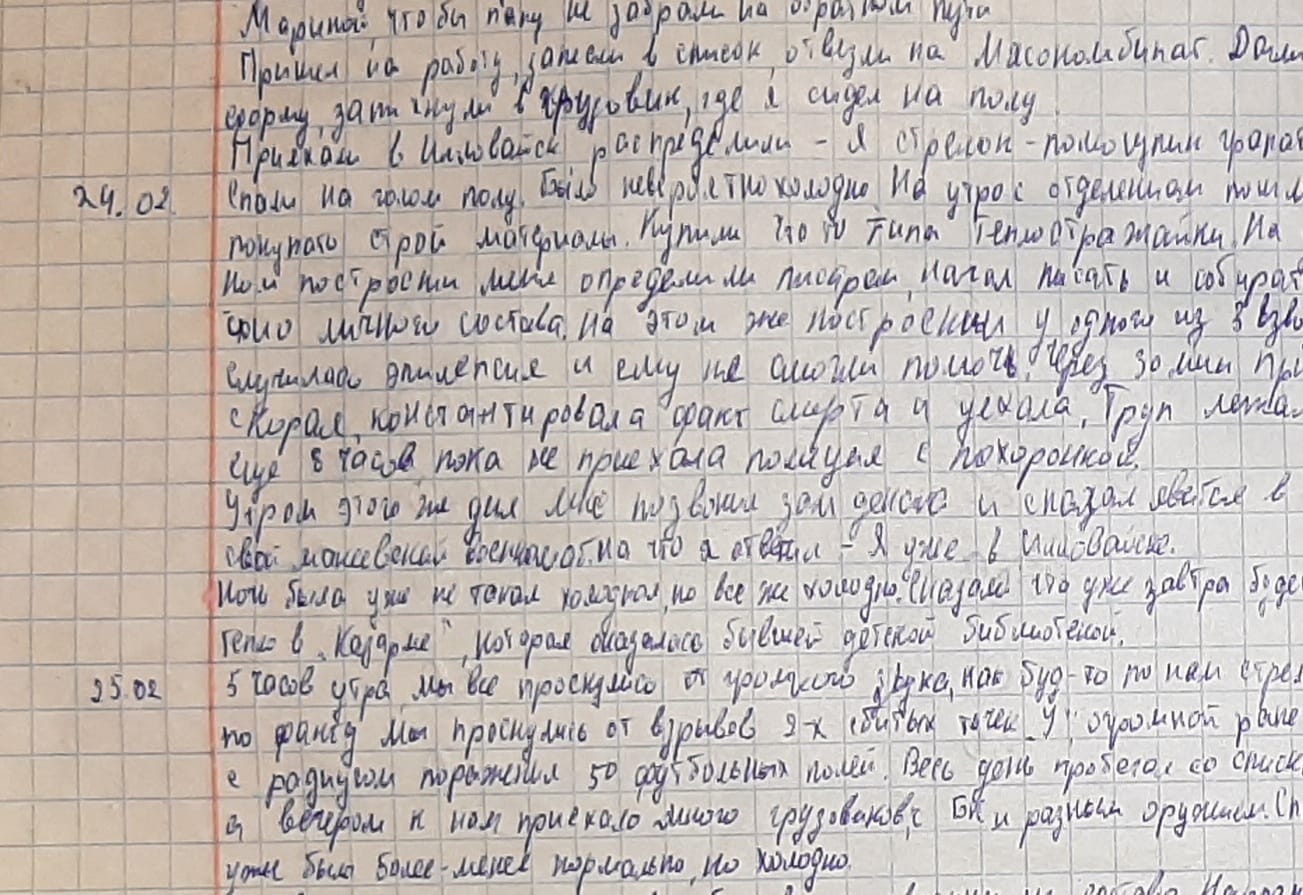 Мариной, чтобы папу не забрали на обратном пути
Пришел на работу, занесли в список, отвезли на Мясокомбинат. Дали
форму, запихнули в грузовик, где я сидел на полу.
Приехали в Иловайск распределили - Я стрелок-помощник гранат
24.02 Спали на голом полу. Было невероятно холодно На утро с отделением пошли
покупать строй материалы. Купили что то типа теплоотражайки. На
ном построении меня определили писарем, начал писать и собират
фио личного состава. На этом же построении у одного из 3 взво
случилась эпилепсия и ему не смогли помочь. Через 30 мин при
скорая, константировала факт смерти и уехала. Труп лежал
еще 8 часов пока не приехала полиция с похоронкой.
Утром этого же дня мне позвонил зам декана и сказал явится в
свой военкомат на что я ответил - Я уже в Иловайске.
Ночь была уже не такая холодная, но все же холодно. Сказали что уже завтра будет
тепло в "Казарме", которая оказалась бывшей детской библиотекой.
25.02 5 часов утра, мы все проснулись от громкого звука, как буд-то по нам стрел
Мы проснулись от взрывов 2-х сбитых точек У огромной раке
с радиусом поражения 50 футбольных полей. Весь день пробегал со списк
а вечером к нам приехало много грузовиков с БК и разным оружием. Сп
уже было более-менее нормально, но холодно.